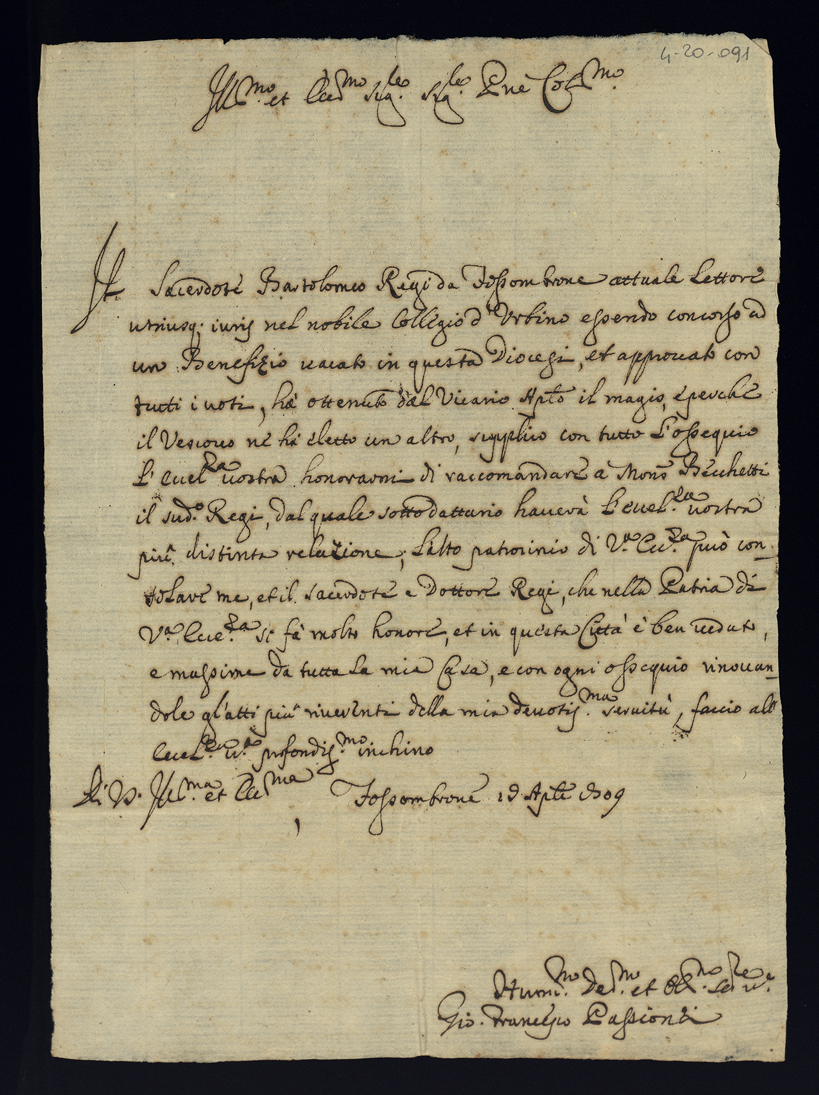 4-20-091
Ill.mo et Ecc.mo Sig.re Sig.re Pne Col.mo
Il Sacerdote Bartolomeo Regi da Fossombrone attuale Lettore
utriusq; iuris nel nobile Collegio d'Urbino essendo concorso ad
un Benefizio vacato in questa Diocesi, et approvato con
tutti i voti, hà ottenuto dal Vicario Ap.to il magis, e perche
il Vescovo ne hà eletto un altro, supplico con tutto l'ossequio
l'Eccel.za vostra honorarmi di raccomandare à Mons. Becchetti
il sud.o Regi, dal quale sottodattario haverà l'Eccel.za vostra
più distinta relazione; l'alto patrocinio di V.ra Ecc.za può con-
solare me, et il Sacerdote e Dottore Regi, che nella Patria di
V.ra Ecce.za si fà molto honore, et in questa Città è ben veduto,
e massime da tutta la mia Casa, e con ogni ossequio rinovan-
dole gl'atti più riverenti della mia devotis.ma servitù, faccio all'
Eccel.za v.ra profondis.mo inchino
Di V. Ill.ma et Ecc.ma Fossombrone 19 Aple 1709
Humi.mo De.mo et Obl.mo Se.re v.e
Gio. Francesco Passionei